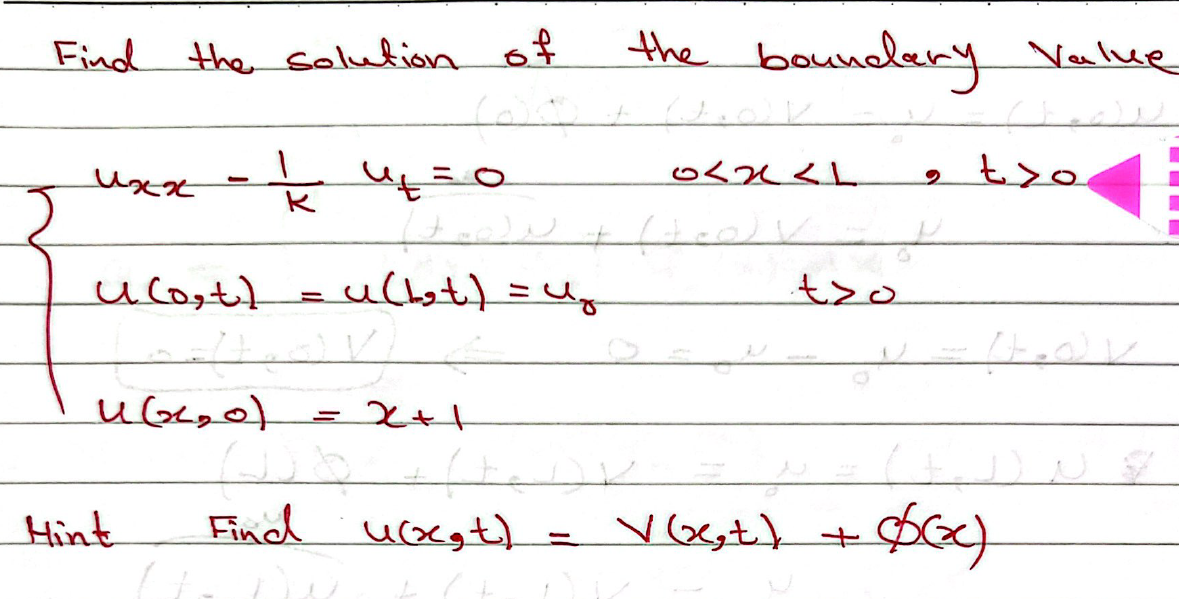 Find the solution of the boundary value
uxx - 1/k ut = 0 0<x<L , t>0
u(0,t) = u(L,t) = u₀ t>0
u(x,0) = x+1
Hint Find u(x,t) = V(x,t) + φ(x)